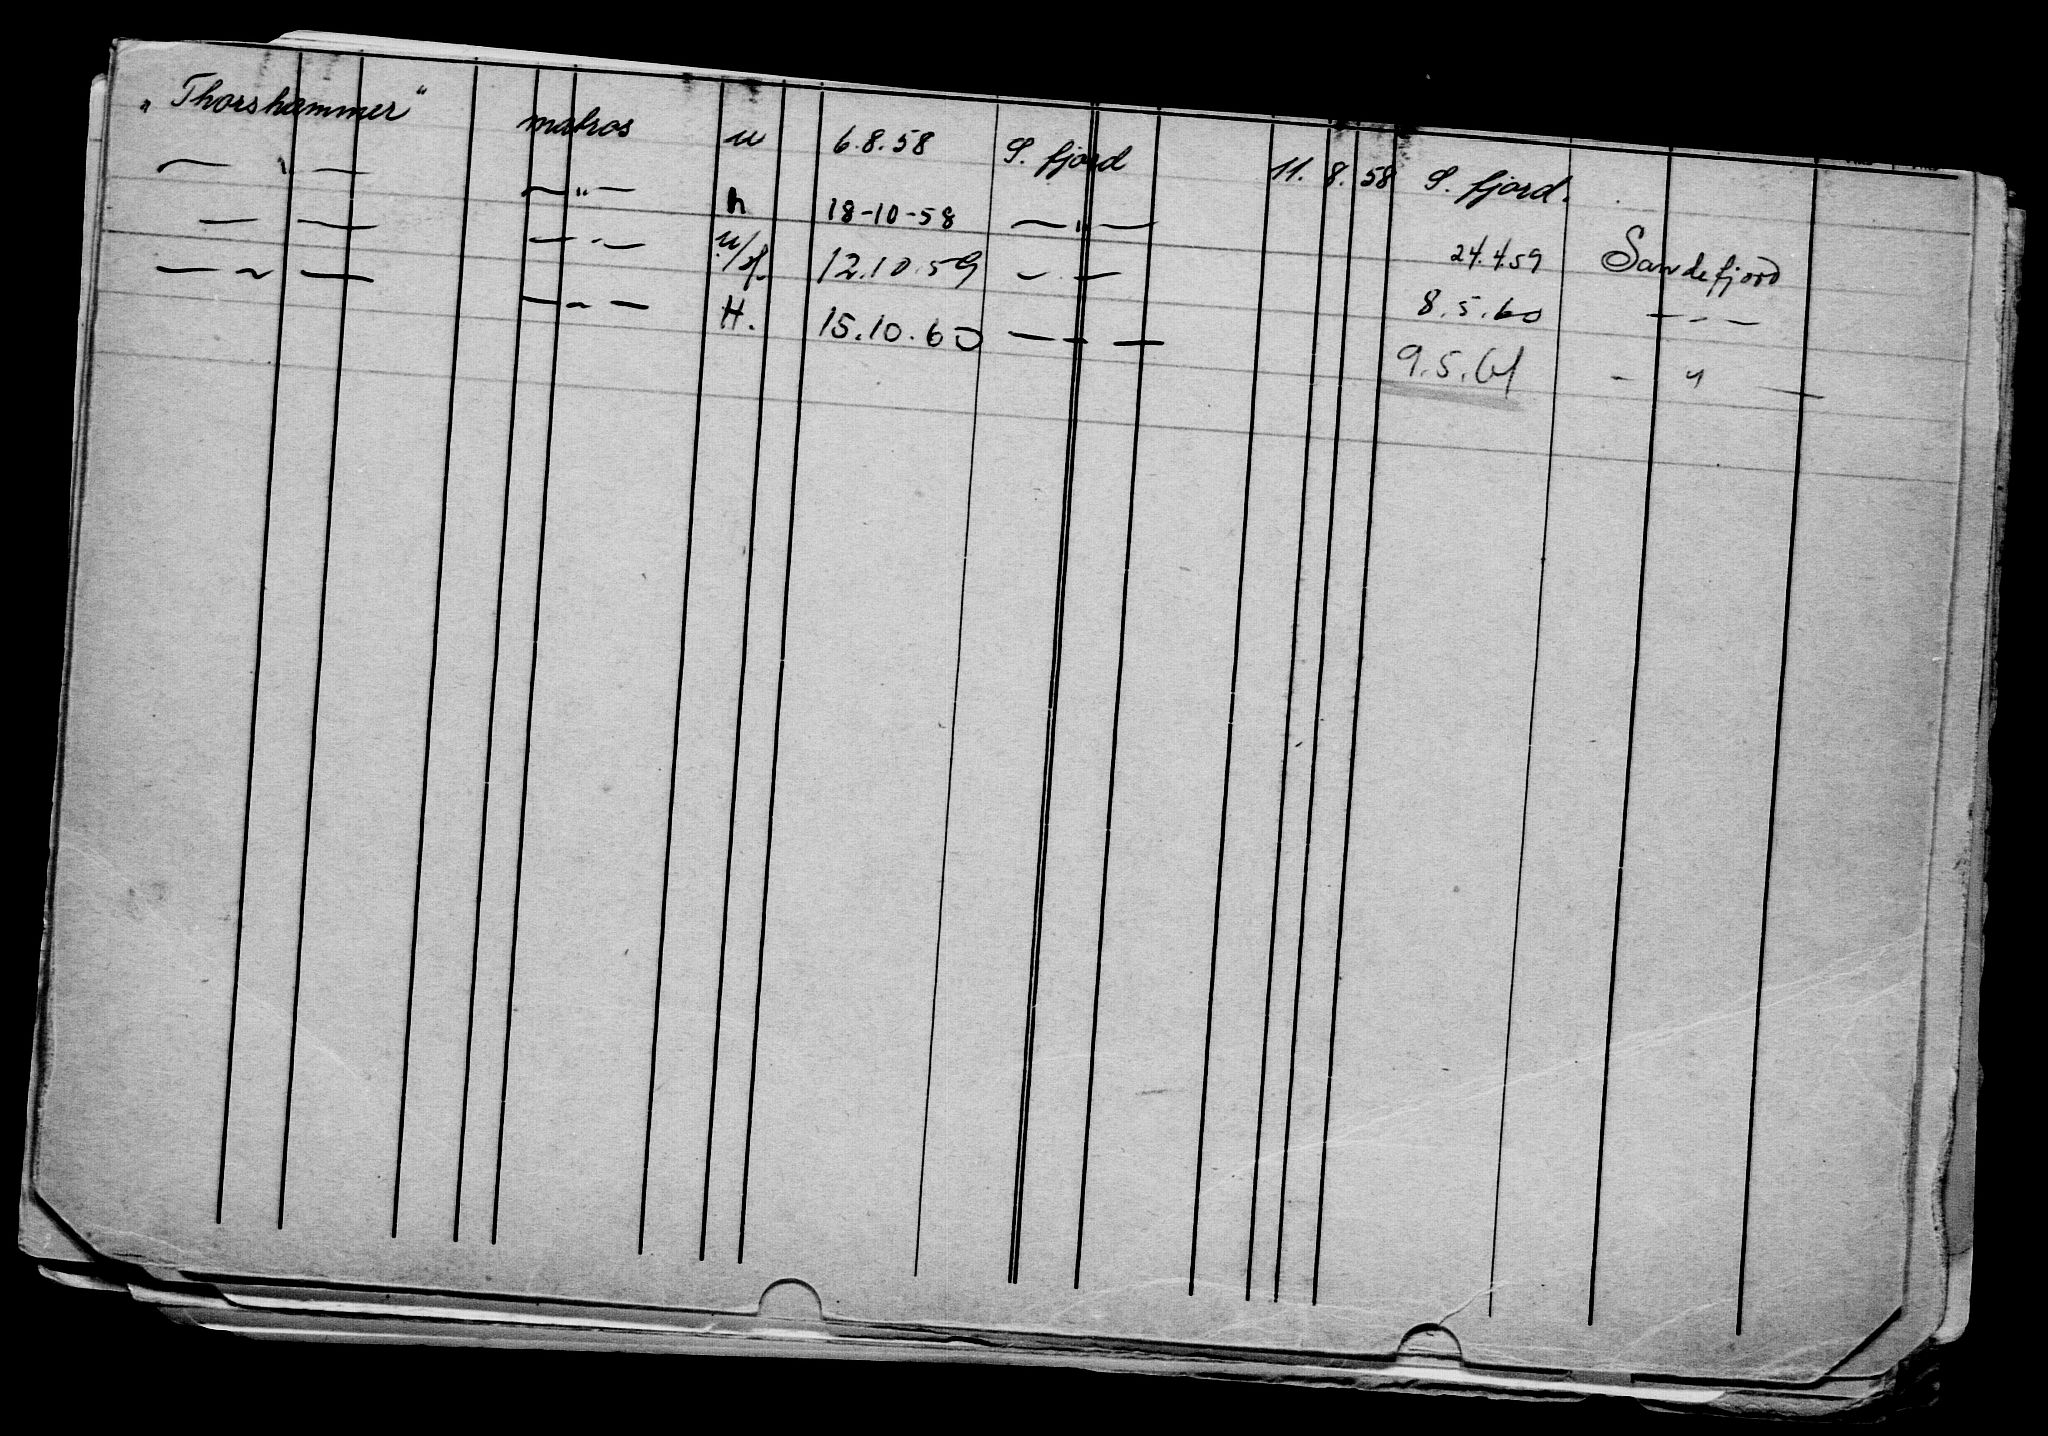 „Thorshammer“ matros u 6.8.58 S. fjord 11. 8. 58 S. fjord.
— " — — " — h 18-10-58 — " — 24.4.59 Sandefjord
— — — - — 12.10.59 - . — 8.5.60 — - —
— ~ — — ~ — H. 15.10.60 — - — 9.5.61 - " —